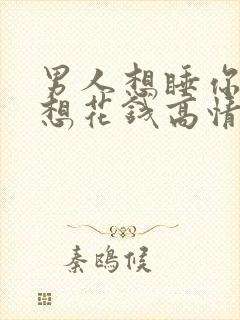 男人想睡你
想花錢高情
秦鴎侯